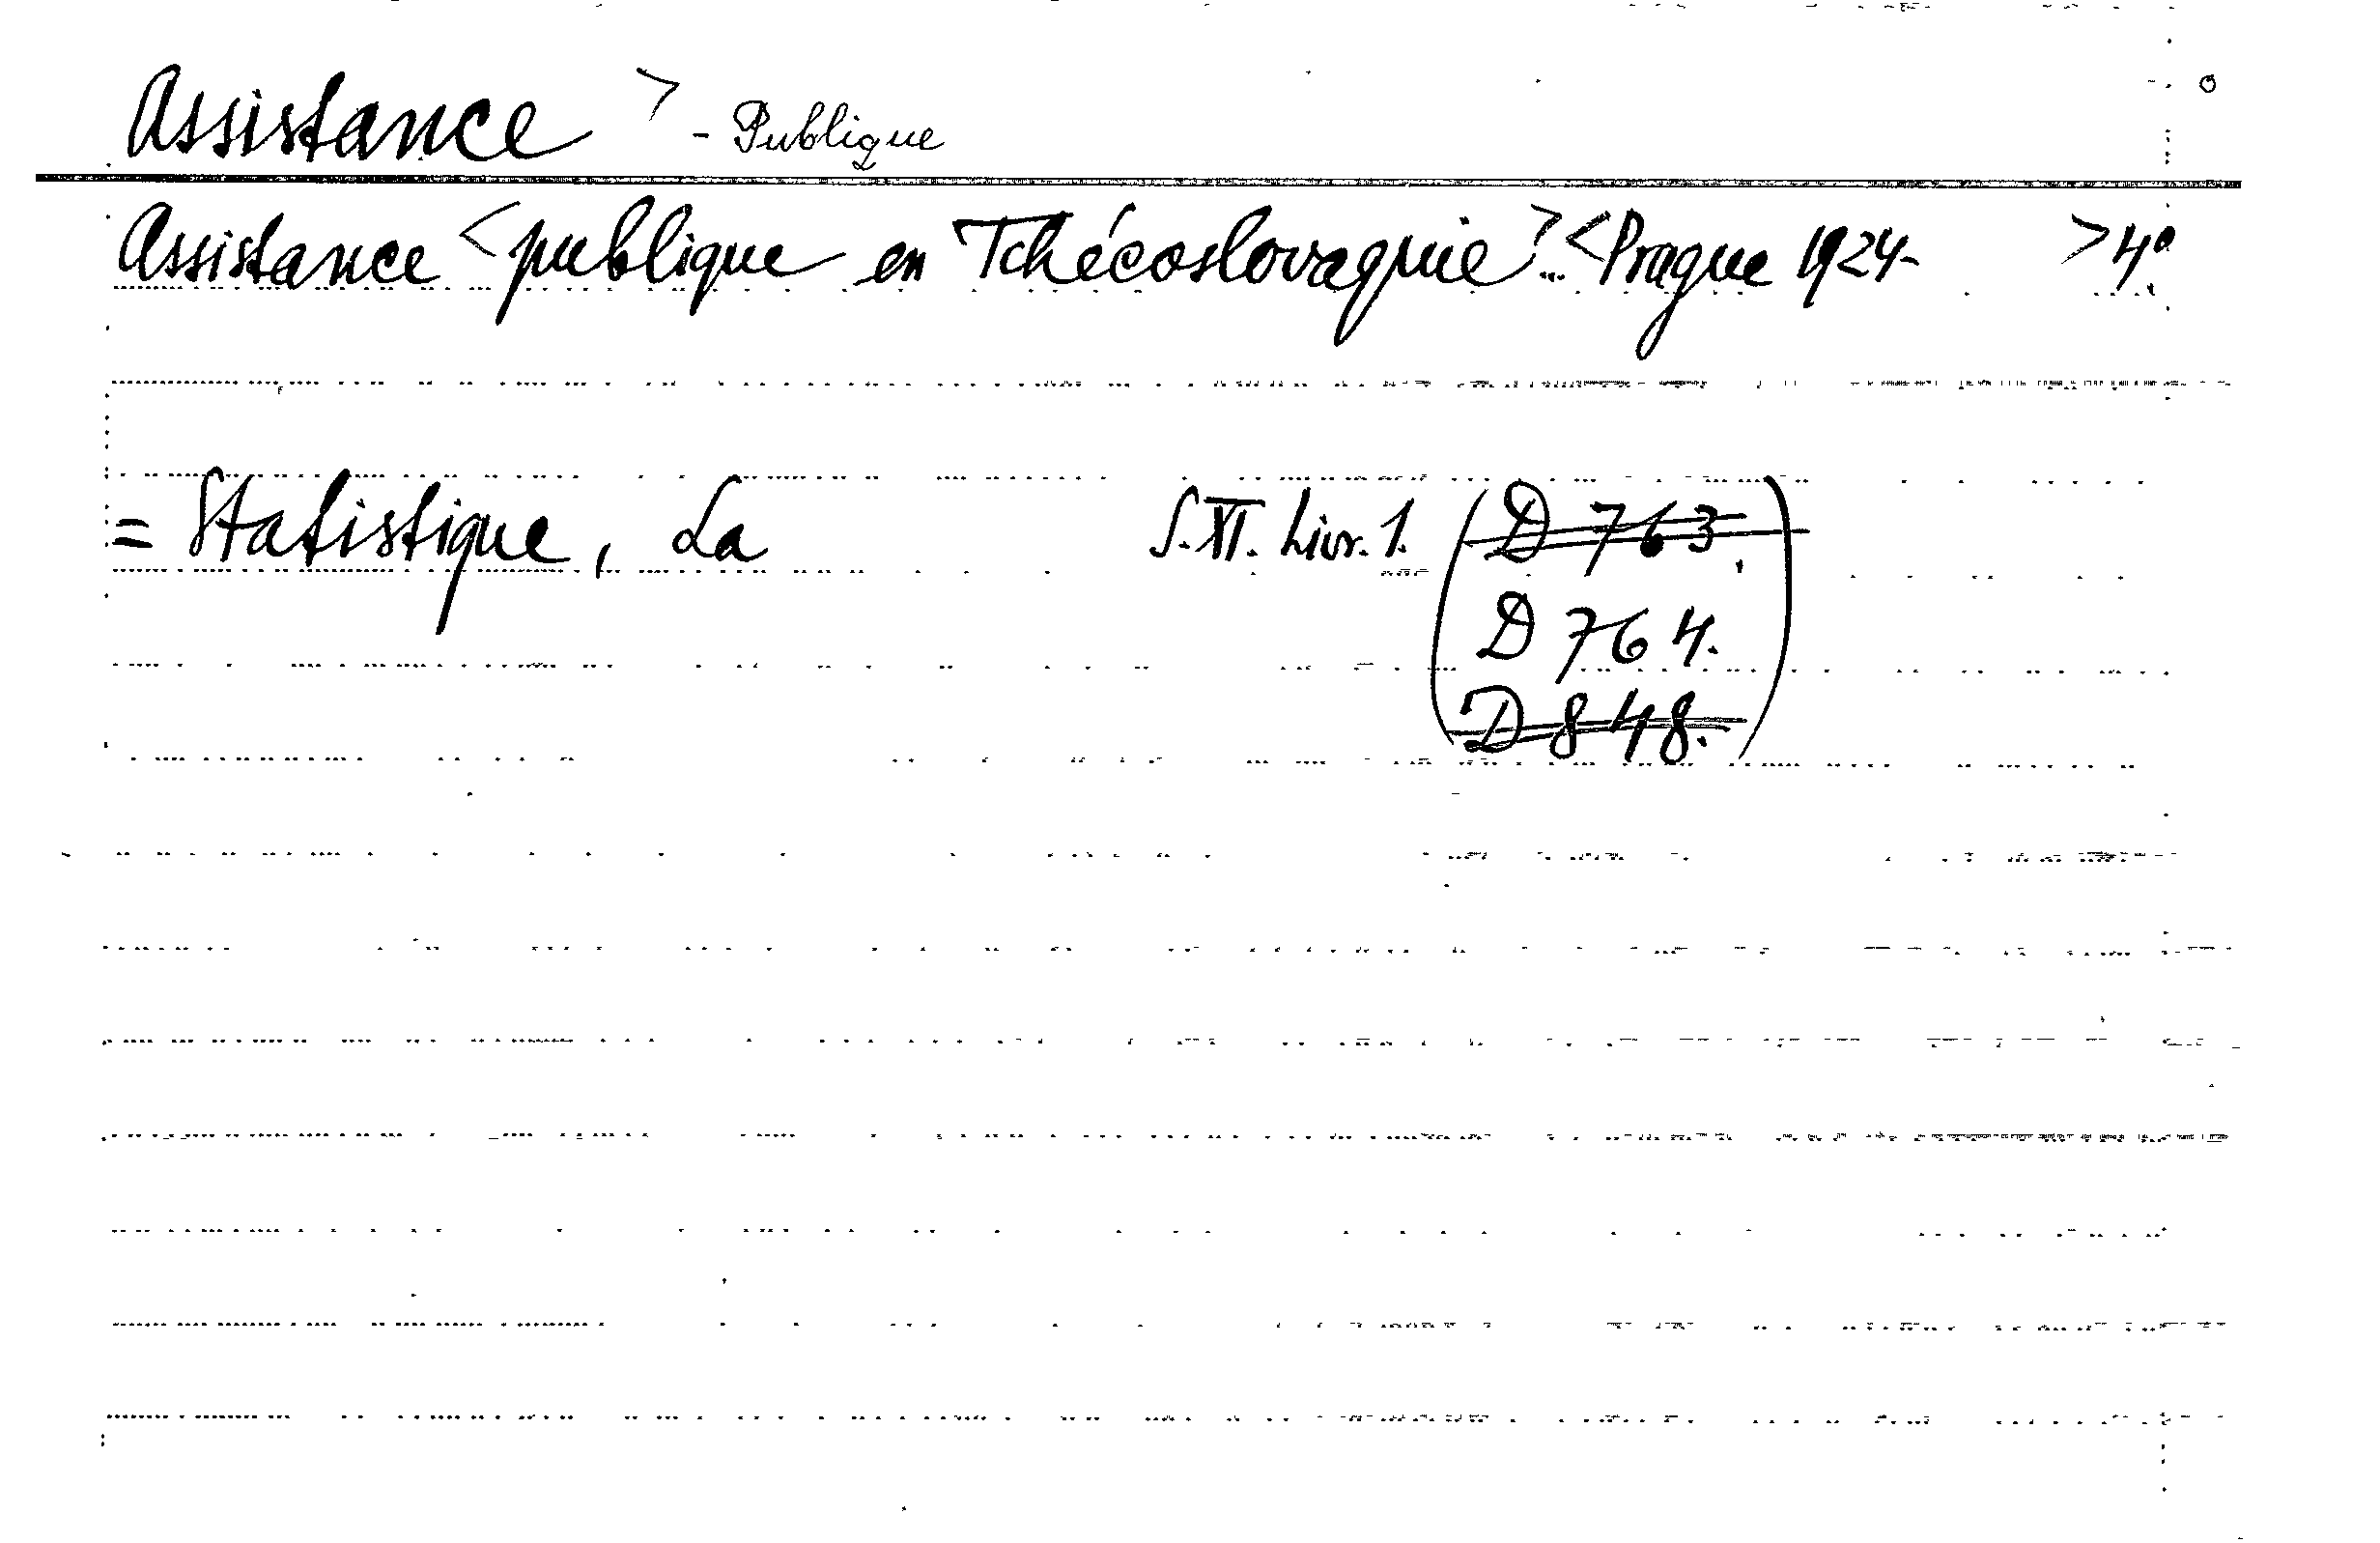 Assistance > - Publique
Assistance < publique en Tchécoslovaquie > ... < Prague 1924- > 4°
= Statistique, La S. XI. Livr. 1. (D 763.
D 764.
D 848.)